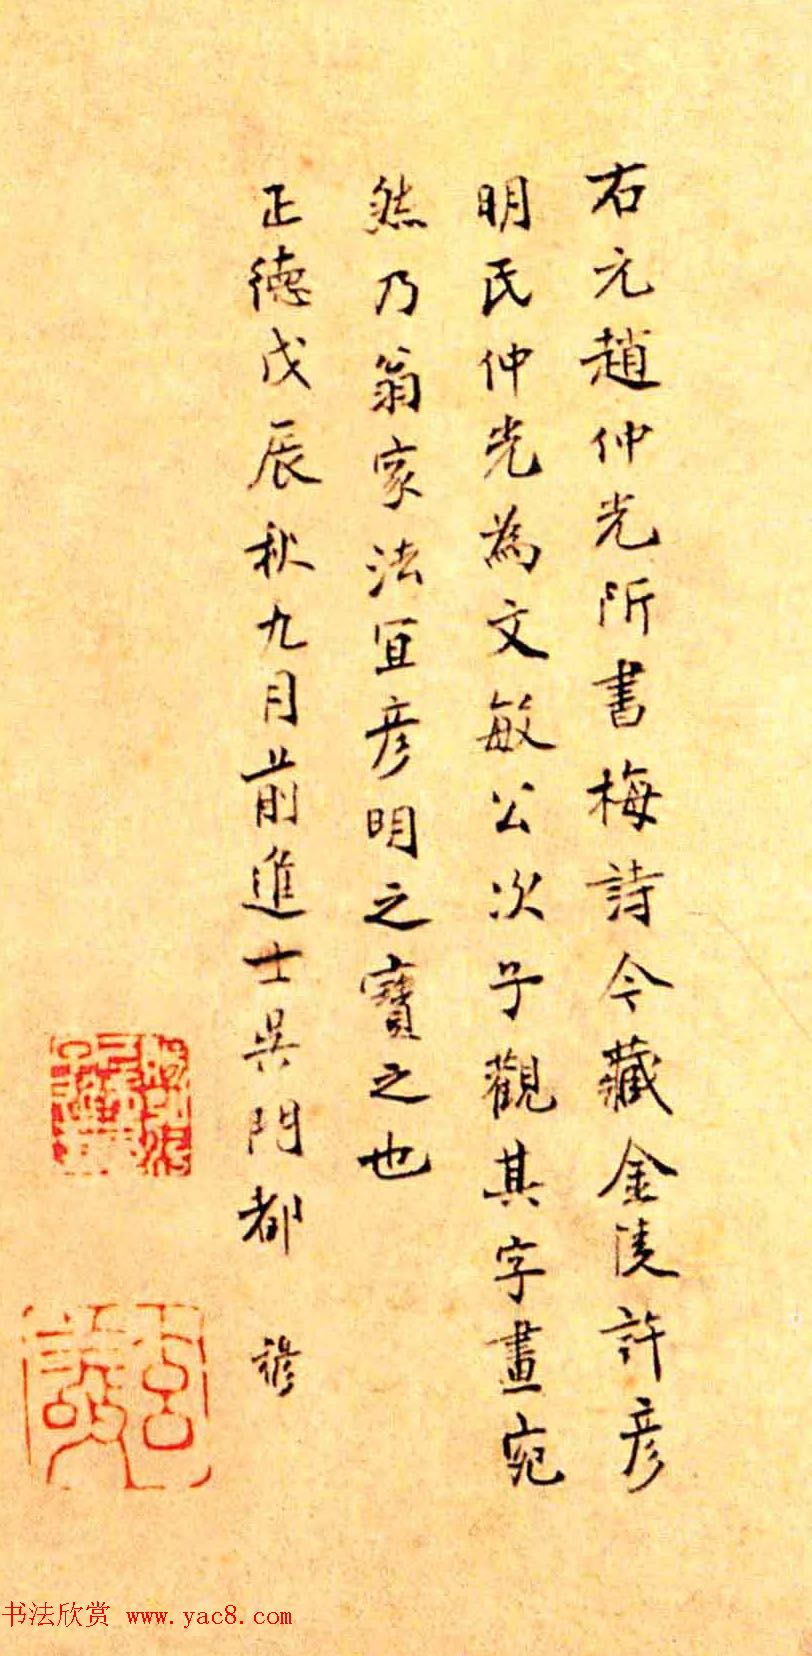 右元趙仲光所書梅詩今藏金陵許彦
明氏仲光為文敏公次子觀其字畫宛
然乃翁家法宜彦明之寶之也
正德戊辰秋九月前進士吳門都 穆
书法欣赏 www.yac8.com